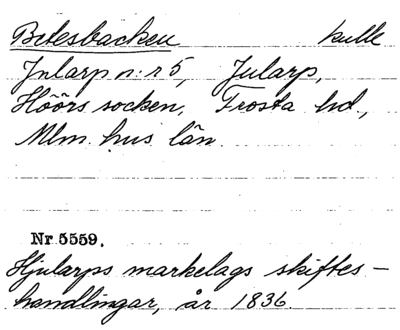 Betesbacken kulle
Jularp n:r 5, Jularp,
Höörs socken, Frosta hd.,
Mlm. hus län.
Nr 5559.
Hjularps markelags skiftes-
handlingar, år 1836.